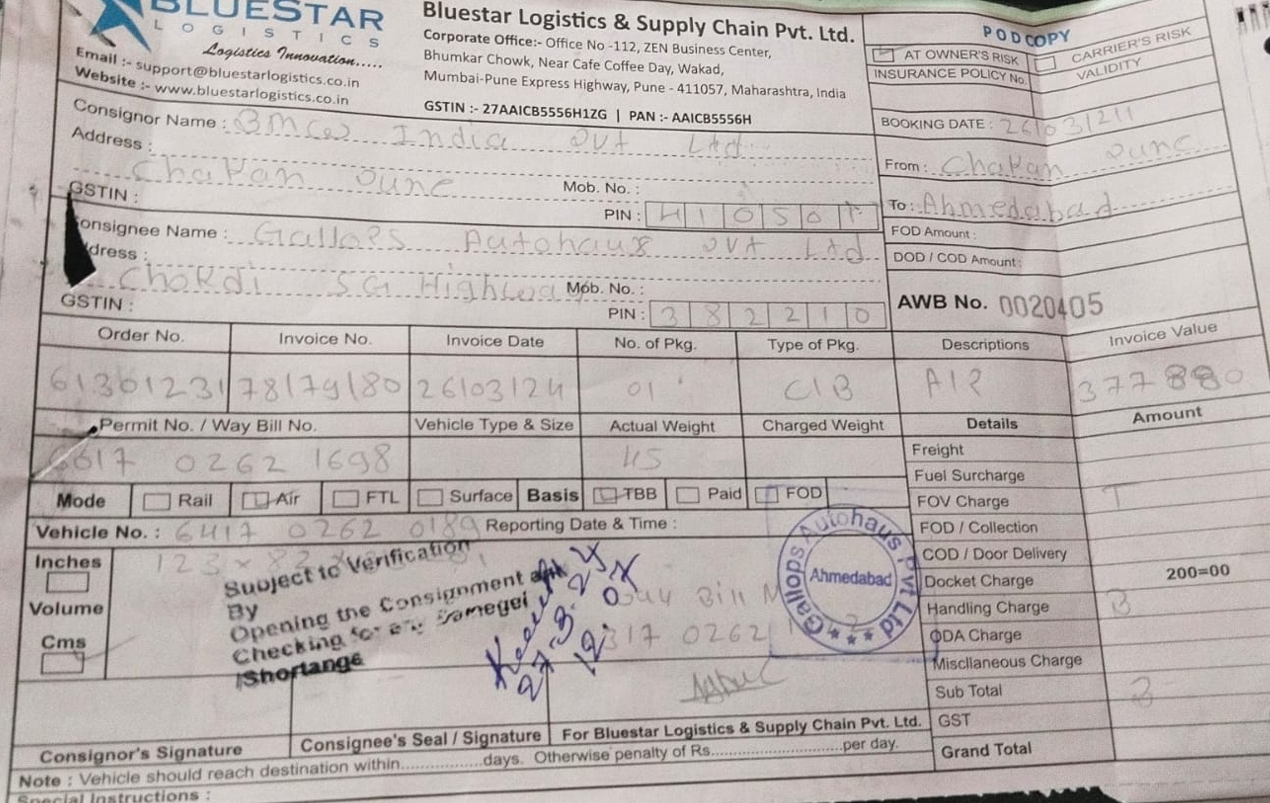 BLUESTAR
LOGISTICS
Logistics Innovation.....
Email :- support@bluestarlogistics.co.in
Website :- www.bluestarlogistics.co.in
Bluestar Logistics & Supply Chain Pvt. Ltd.
Corporate Office:- Office No -112, ZEN Business Center,
Bhumkar Chowk, Near Cafe Coffee Day, Wakad,
Mumbai-Pune Express Highway, Pune - 411057, Maharashtra, India
GSTIN :- 27AAICB5556H1ZG | PAN :- AAICB5556H
POD COPY
AT OWNER'S RISK CARRIER'S RISK
INSURANCE POLICY No. VALIDITY
BOOKING DATE :
From : Chakan
To : Ahmedabad
FOD Amount :
DOD / COD Amount :
AWB No. 0020405
Consignor Name : India Ltd
Address :
Chakan
Mob. No. :
GSTIN : PIN : 410501
Consignee Name : Gallops Autohaus Ltd
dress :
Chokdi SG Highway Mob. No. :
GSTIN : PIN : 382210
Order No. Invoice No. Invoice Date No. of Pkg. Type of Pkg. Descriptions Invoice Value
61301231 78179180 26103124 01 377880
Permit No. / Way Bill No. Vehicle Type & Size Actual Weight Charged Weight Details Amount
6617 0262 1698 45
Freight
Fuel Surcharge
FOV Charge T
FOD / Collection
COD / Door Delivery
Docket Charge 200=00
Handling Charge B
ODA Charge
Miscllaneous Charge
Sub Total B
GST
Grand Total
Mode Rail Air FTL Surface Basis TBB Paid FOD
Vehicle No. : 6417 0262 0189 Reporting Date & Time :
Inches
Volume
Cms
123 ×
Subject to Verification
By
Opening the Consignment
Checking for any
Shortange
27-3-24
Bill
317 0262
Gallops Autohaus Pvt Ltd
Ahmedabad
Consignor's Signature Consignee's Seal / Signature For Bluestar Logistics & Supply Chain Pvt. Ltd.
Note : Vehicle should reach destination within..................days. Otherwise penalty of Rs............................per day.
Special Instructions :